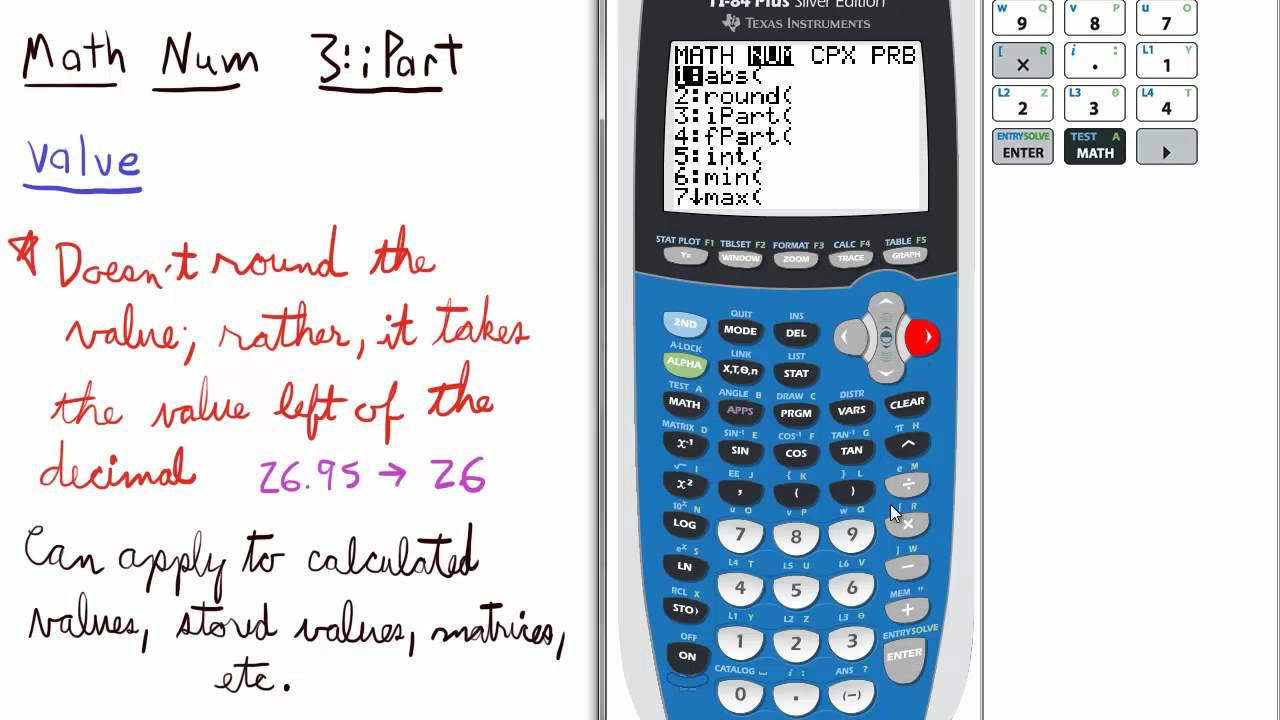 Math Num 3:iPart
value
Doesn't round the
value; rather, it takes
the value left of the
decimal 26.95 → 26
Can apply to calculated
values, stored values, matrices,
etc.
TI-84 Plus Silver Edition
TEXAS INSTRUMENTS
MATH NUM CPX PRB
1:abs(
2:round(
3:iPart(
4:fPart(
5:int(
6:min(
7↓max(
STAT PLOT F1 TBLSET F2 FORMAT F3 CALC F4 TABLE F5
Y= WINDOW ZOOM TRACE GRAPH
QUIT INS
2ND MODE DEL
A-LOCK LINK LIST
ALPHA X,T,Θ,n STAT
TEST A ANGLE B DRAW C DISTR
MATH APPS PRGM VARS CLEAR
MATRIX D SIN⁻¹ E COS⁻¹ F TAN⁻¹ G π H
x⁻¹ SIN COS TAN ^
√ I EE J { K } L e M
x² , ( ) ÷
10ˣ N u O v P w Q [ R
LOG 7 8 9 ×
eˣ S L4 T L5 U L6 V ] W
LN 4 5 6 −
RCL X L1 Y L2 Z L3 θ MEM "
STO› 1 2 3 +
OFF CATALOG i : ANS ? ENTRY SOLVE
ON 0 . (−) ENTER
w Q v P u O
9 8 7
[ R i : L1 Y
× . 1
L2 Z L3 θ L4 T
2 3 4
ENTRY SOLVE TEST A
ENTER MATH